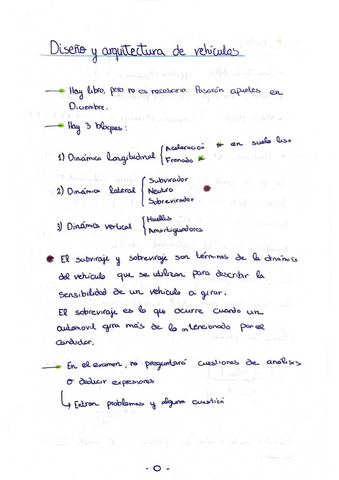 Diseño y arquitectura de vehículos
→ Hay libro, pero no es necesario. Pasarán apuntes en
Diciembre.
→ Hay 3 bloques:
1) Dinámica longitudinal { Aceleración * en suelo liso
Frenado *
2) Dinámica lateral { Subvirador
Neutro
Sobrevirador
3) Dinámica vertical { Muelles
Amortiguadores
El subviraje y sobreviraje son términos de la dinámica
del vehículo que se utilizan para describir la
sensibilidad de un vehículo a girar.
El sobreviraje es lo que ocurre cuando un
automovil gira más de lo intencionado por el
conductor.
→ En el examen, no preguntará cuestiones de análisis
o deducir expresiones
↳ Entran problemas y alguna cuestión
- 0 -